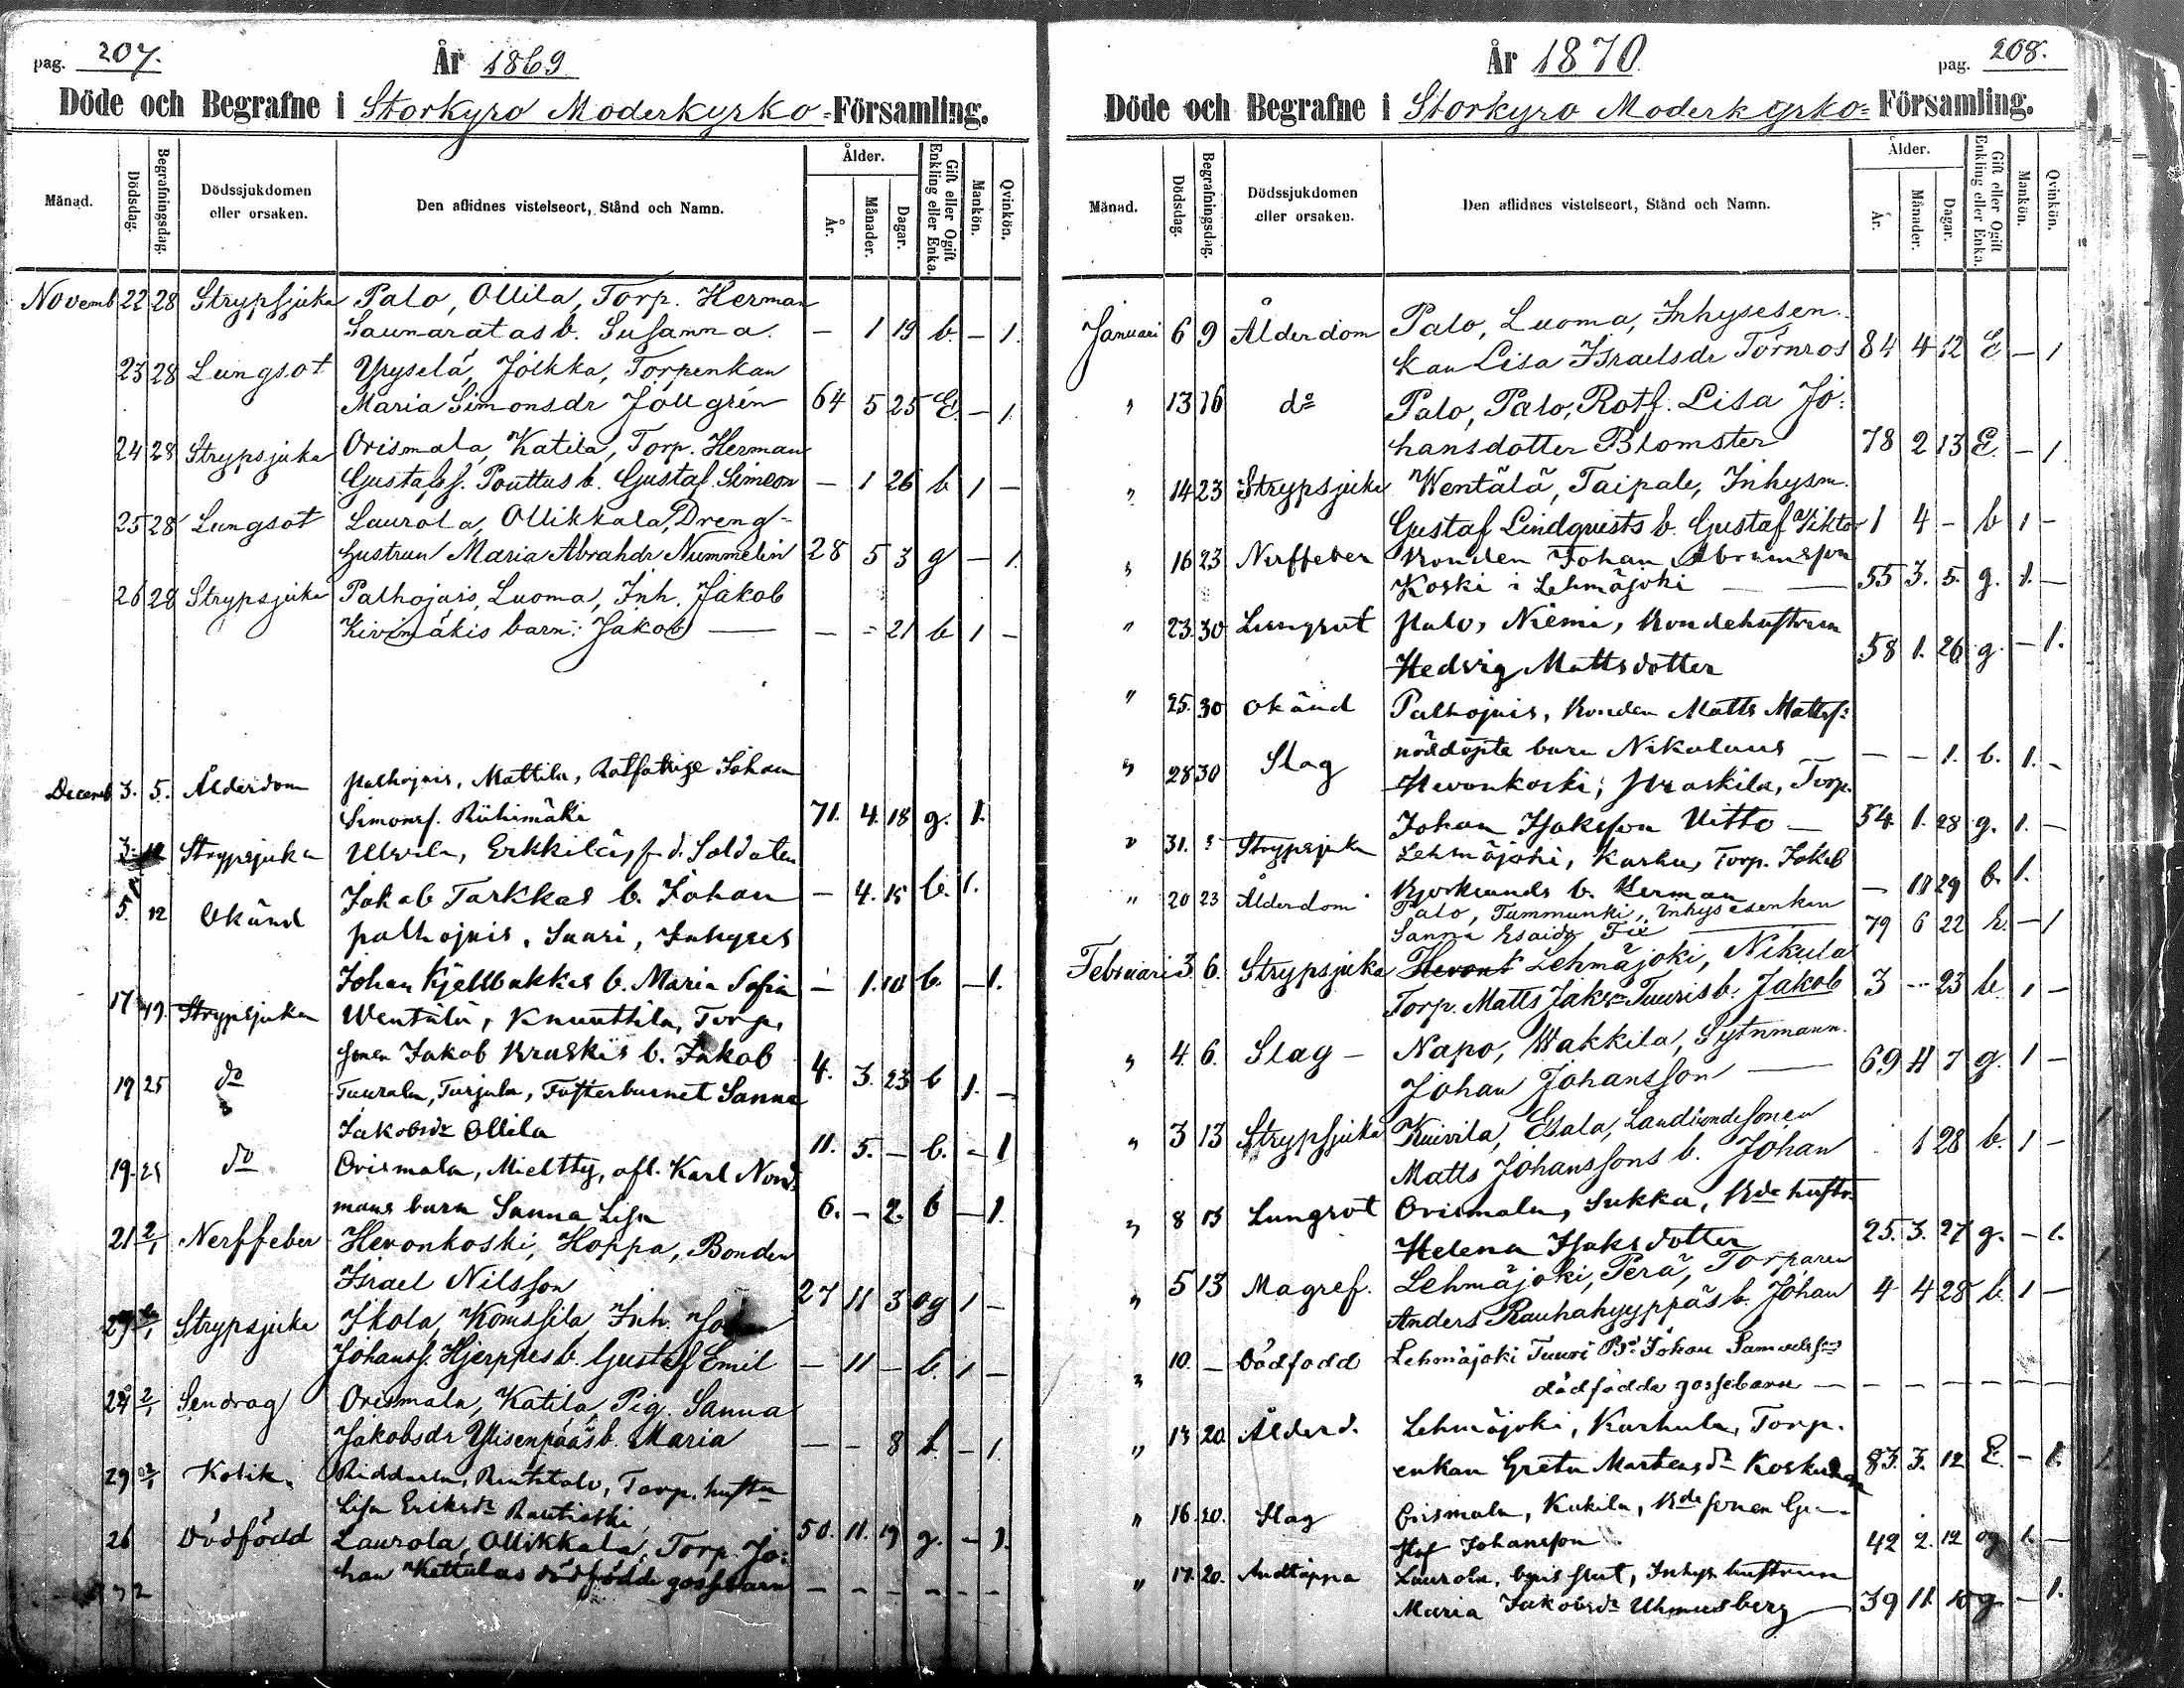 pag. 207.
År 1869
Döde och Begrafne i Storkyro Moderkyrko-Församling.
Månad. Dödsdag. Begrafningsdag. Dödssjukdomen eller orsaken. Den aflidnes vistelseort, Stånd och Namn. Ålder. År. Månader. Dagar. Gift eller Ogift Enkling eller Enka. Mankön. Qvinkön.
Novemb 22 28 Strypsjuka Palo, Ollila, Torp. Herman
Saunaratas b. Susanna. — 1 19 b. — 1.
23 28 Lungsot Yryselä, Joikka, Torpenkan
Maria Simonsdr Jällgrén 64 5 25 E. — 1.
24 28 Strypsjuka Orismala, Katila, Torp. Herman
Gustafss. Pouttus b. Gustaf Simeon — 1 26 b 1 —
25 28 Lungsot Laurola, Ollikkala, Dreng-
hustrun Maria Abrahdr Nummelin 28 5 3 g — 1.
26 28 Strypsjuka Palhojais, Luoma, Inh. Jakob
Kivimäkis barn: Jakob — — - 21 b 1 —
Decemb 3. 5. Ålderdom Palhojais, Mattila, Rotfattige Johan
Simonss. Riihimäki 71. 4. 18 g. 1.
3. 12 Strypsjuka Ulvila, Erkkilä, f. d. Soldaten
Jakob Tarkkas b. Johan — 4. 15 b. 1.
5. 12 Okänd palhojais, Saari, Inhyses
Johan Kjellbakkas b. Maria Sofia — 1. 10 b. — 1.
17 19. Strypsjuka Wentälä, Knuuttila, Torp.
sonen Jakob Kraskis b. Jakob 4. 3. 23 b 1. —
19 25 do Tuurala, Turjula, Fosterbarnet Sanna
Jakobsdr Ollila 11. 5. — b. — 1
19. 25 do Orismala, Mieltty, afl. Karl Nord-
mans barn Sanna Lisa 6. — 2. b — 1.
21 2/1 Nerffeber Hevonkoski, Hoppa, Bonden
Israel Nilsson 27 11 3 og 1 —
27 2/1 Strypsjuka Ikola, Komssila, Inh. Johan
Johanss. Hjerppes b. Gustaf Emil — 11 — b. 1 —
24 2/1 Sendrag Orismala, Katila, Pig. Sanna
Jakobsdr Ylisenpääs b. Maria — — 8 b. — 1.
29 2/1 Kolik. Riddarla, Rintitalo, Torp. hustru
Lisa Eriksdr Rautioski 50. 11. 19 g. — 1.
26 Dödfödd Laurola, Ollikkala, Torp. Jo-
han Kettulas dödfödde gossebarn — — — — — —
pag. 208.
År 1870
Döde och Begrafne i Storkyro Moderkyrko-Församling.
Månad. Dödsdag. Begrafningsdag. Dödssjukdomen eller orsaken. Den aflidnes vistelseort, Stånd och Namn. Ålder. År. Månader. Dagar. Gift eller Ogift Enkling eller Enka. Mankön. Qvinkön.
Januari 6 9 Ålderdom Palo, Luoma, Inhysesen-
kan Lisa Israelsdr Törnros 84 4 12 E — 1
" 13 16 do Palo, Palo, Rotf. Lisa Jo-
hansdotter Blomster 78 2 13 E. — 1.
" 14 23 Strypsjuka Wentälä, Taipale, Inhysm.
Gustaf Lindqvists b. Gustaf Viktor 1 4 — b 1 —
" 16 23 Nerffeber Bonden Johan Abramsson
Koski i Lehmäjoki — 55 3. 5. g. 1. —
" 23. 30 Lungsot Palo, Niemi, Bondehustrun
Hedvig Mattsdotter 58 1. 26 g. — 1.
" 25. 30 Okänd Palhojais, Bonden Matts Mattss:
nöddöpte barn Nikolaus — — 1. b. 1. —
" 28 30 Slag Hevonkoski, Draskila, Torp.
Johan Isaksson Uitto — 54. 1. 28 g. 1. —
" 31. Strypsjuka Lehmäjoki, Karhu, Torp. Jakob
Bjorklunds b. Herman — 10 29 b. 1.
" 20 23 Ålderdom Palo, Tammunki, Inhysesenkan
Sanna Esaidr Fix — 79 6 22 E. — 1
Februari 3 6. Strypsjuka Hevonk Lehmäjoki, Nikula
Torp. Matts Jakss Tuuris b. Jakob 3 — 23 b. 1 —
" 4. 6. Slag — Napo, Wakkila, Sytnmann.
Johan Johansson — 69 11 7 g. 1 —
" 3 13 Strypsjuka Kuivila, Esala, Landbondesonen
Matts Johanssons b. Johan 1 28 b. 1 —
" 8 13 Lungsot Orismala, Sukka, Bde hustr.
Helena Isaksdotter 25. 3. 27 g. — 1.
" 5 13 Magref. Lehmäjoki, Perä, Torparen
Anders Rauhahyyppäs b. Johan 4 4 28 b. 1 —
" 10. — Dödfödd Lehmäjoki Tuuri Bd. Johan Samuelssons
dödfödda gossebarn — — — — — — —
" 13 20 Ålderd. Lehmäjoki, Karhula, Torp.
enkan Greta Mårtensdr Koskinen 83. 3. 12 E. — 1.
" 16. 20. Slag Orismala, Kukila, Bde sonen Gu-
staf Johansson 42 2. 12 og 1. —
" 17. 20. Andtäppa Laurola, Inhys. hustrun
Maria Jakobsdr Uhmusberg — 39 11. 10 g — 1.